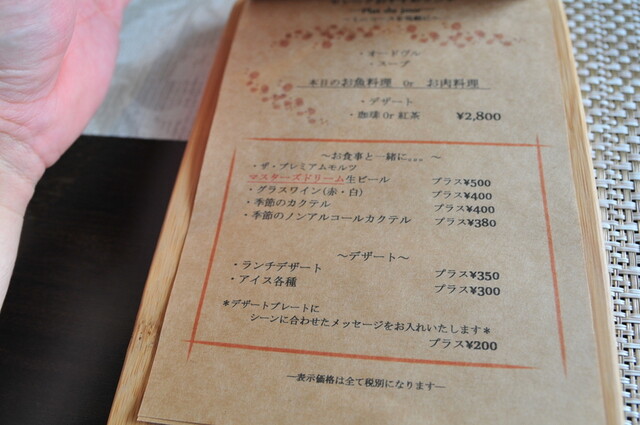 Plat du jour
・オードヴル
・スープ
本日のお魚料理 Or お肉料理
・デザート
・珈琲 Or 紅茶 ¥2,800
～お食事と一緒に。。。～
・ザ・プレミアムモルツ
マスターズドリーム生ビール プラス¥500
・グラスワイン(赤・白) プラス¥400
・季節のカクテル プラス¥400
・季節のノンアルコールカクテル プラス¥380
～デザート～
・ランチデザート プラス¥350
・アイス各種 プラス¥300
*デザートプレートに
シーンに合わせたメッセージをお入れいたします*
プラス¥200
―表示価格は全て税別になります―